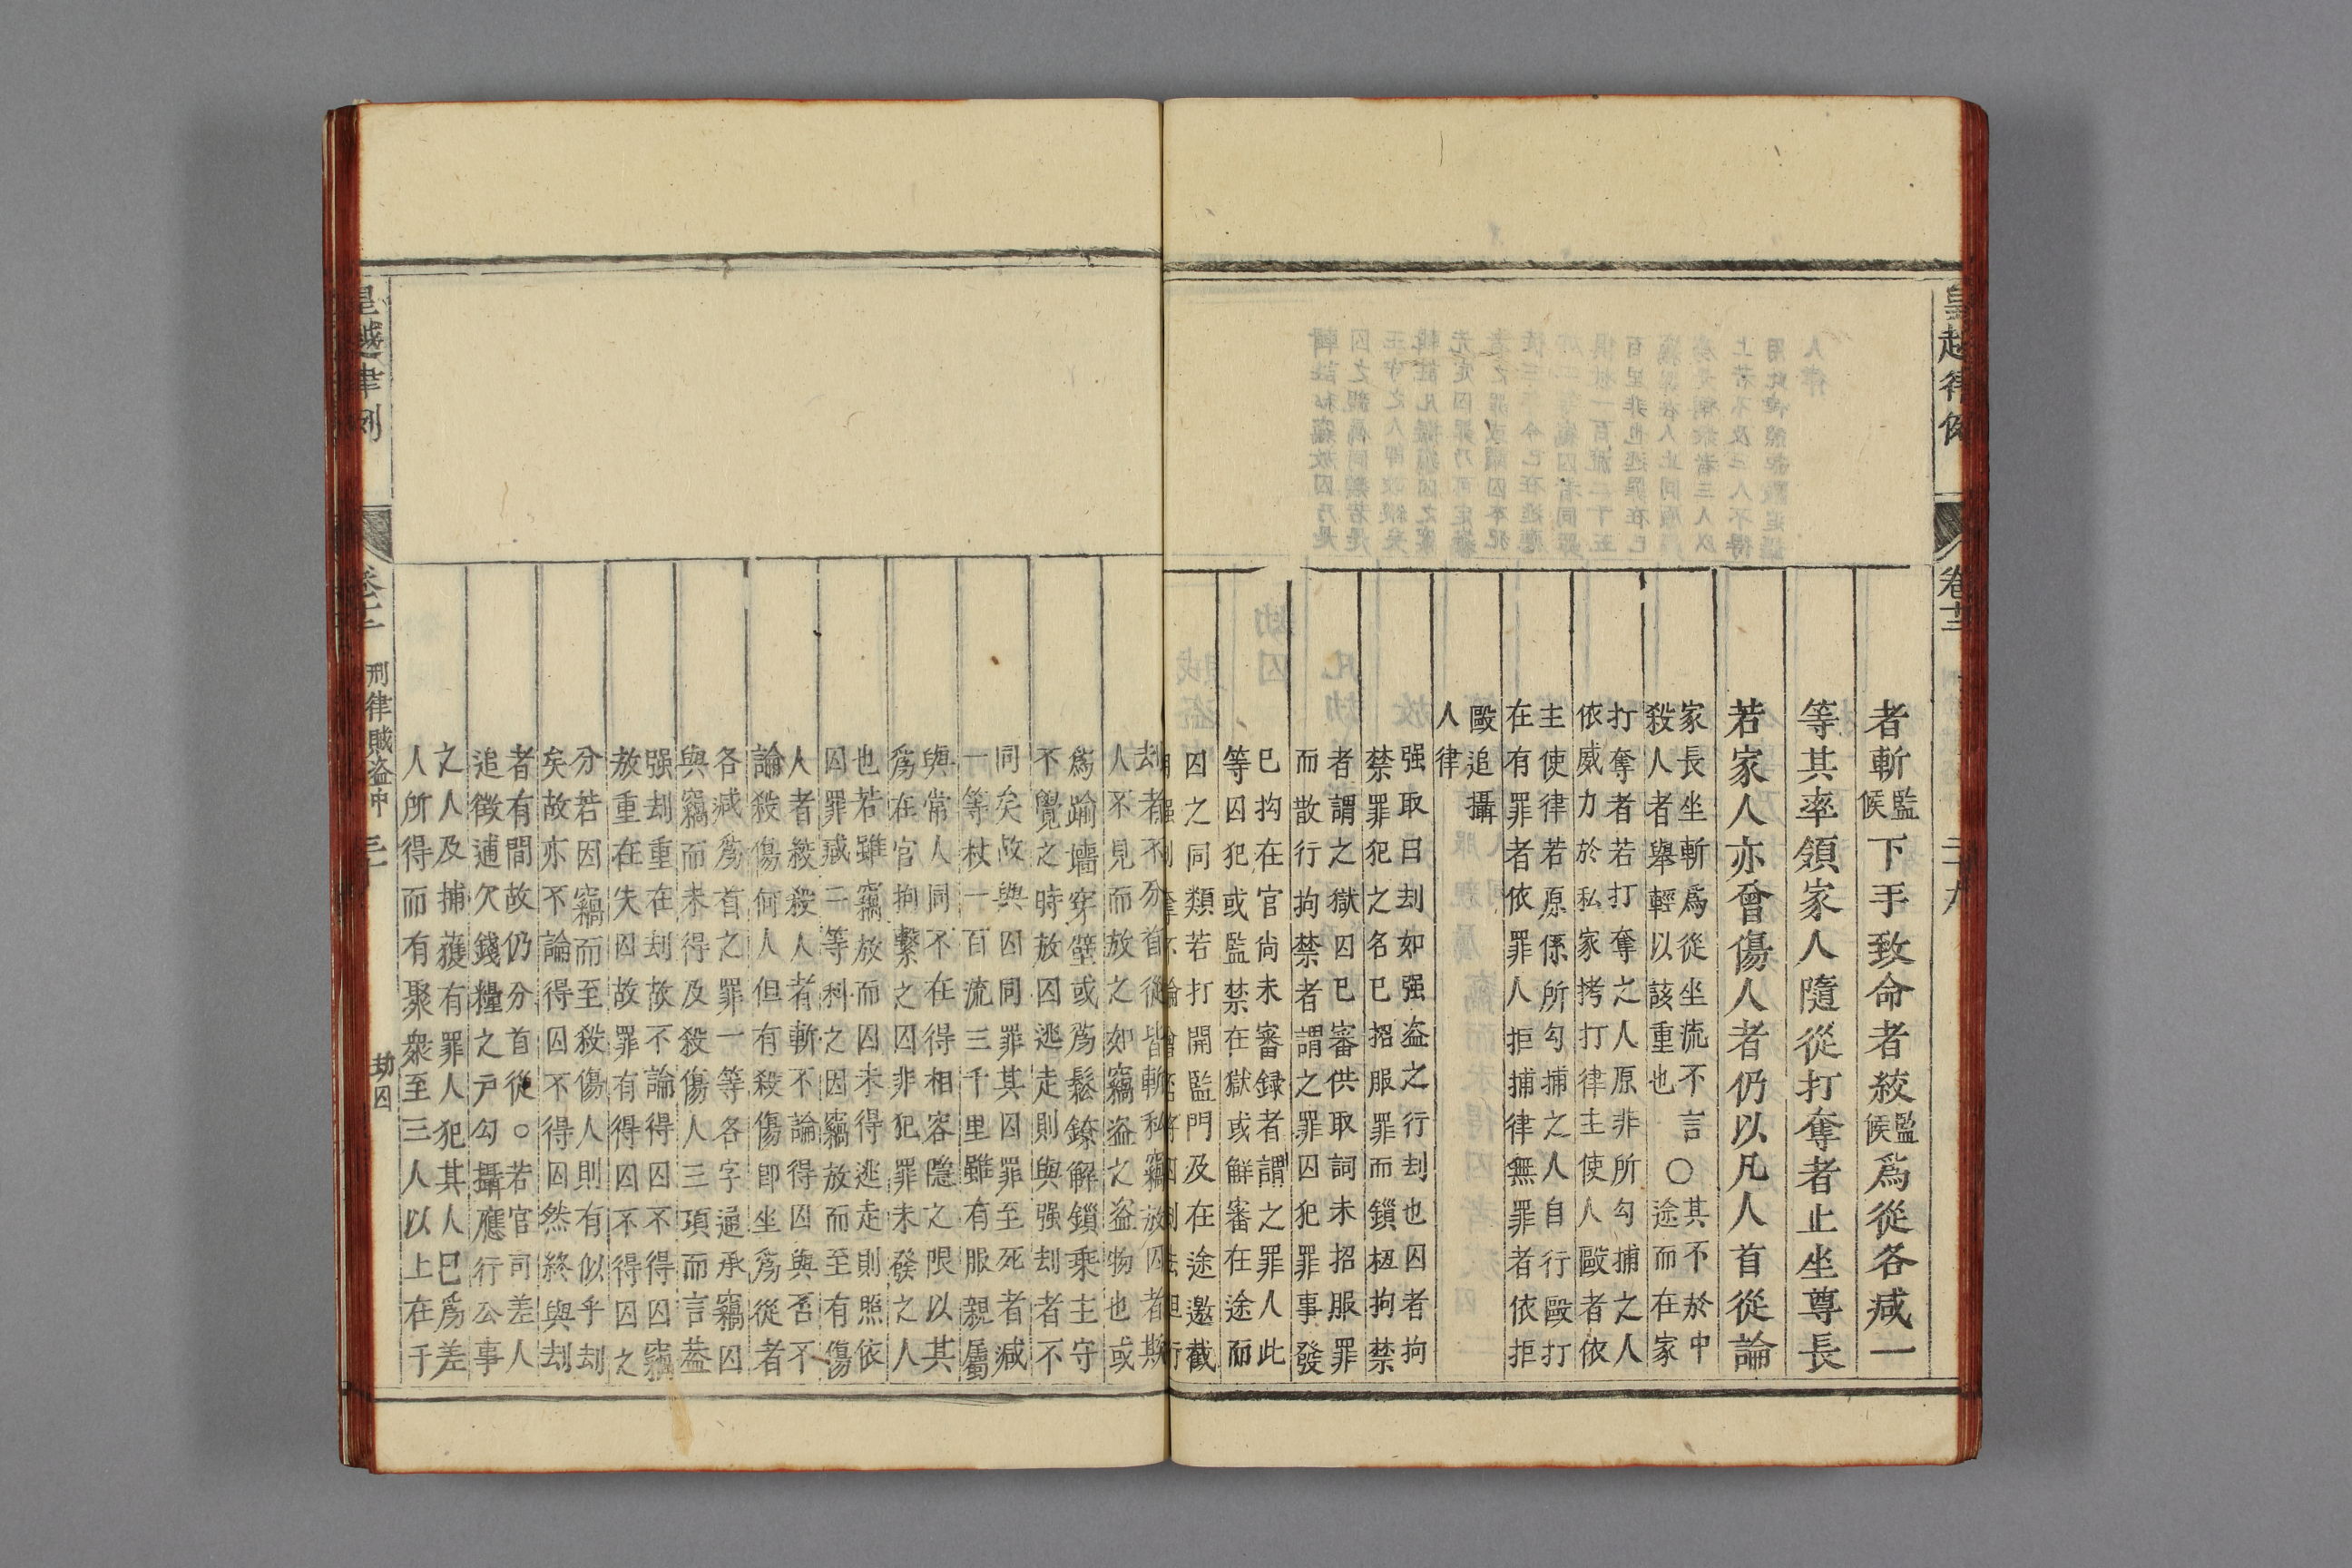 卷十三
者斬監候下手致命者絞監候爲從各减一
等其率領家人隨從打奪者止坐尊長
若家人亦曾傷人者仍以凡人首從論
家長坐斬爲從坐流不言○其不於中
殺人者舉輕以該重也 途而在家
打奪者若打奪之人原非所勾捕之人
依威力於私家拷打律主使人毆者依
主使律若原係所勾捕之人自行毆打
在有罪者依罪人拒捕律無罪者依拒
毆追攝
人律
强取曰刦如强盗之行刦也囚者拘
禁罪犯之名已招服罪而鎖杻拘禁
者謂之獄囚已審供取詞未招服罪
而散行拘禁者謂之罪囚犯罪事發
已拘在官尚未審録者謂之罪人此
等囚犯或監禁在獄或鮮審在途而
囚之同類若打開監門及在途邀截
刦者不分首從皆斬私竊放囚者斯
人不見而放之如竊盗之盗物也或
爲踰墻穿壁或爲鬆鐐解鎖乘主守
不覺之時放囚逃走則與强刦者不
同矣故與囚同罪其囚罪至死者减
一等杖一百流三千里雖有服親屬
與常人同不在得相容隱之限以其
爲在官拘繫之囚非犯罪未發之人
也若雖竊放而囚未得逃走則照依
囚罪减二等科之因竊放而至有傷
人者絞殺人者斬不論得囚與否不
論殺傷何人但有殺傷即坐爲從者
各减爲首之罪一等各字通承竊囚
與竊而未得及殺傷人三項而言葢
强刦重在刦故不論得囚不得囚竊
放重在失囚故罪有得囚不得囚之
分若因竊而至殺傷人則有似乎刦
矣故亦不論得囚不得囚然終與刦
者有間故仍分首從○若官司差人
追徵逋欠錢糧之戸勾攝應行公事
之人及捕獲有罪人犯其人已爲差
人所得而有聚衆至三人以上在于
皇越律例
刑律賊盗中
劫囚